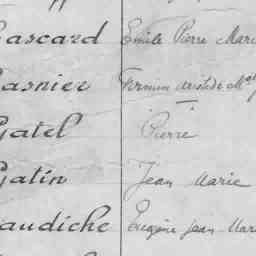 Gascard Emile Pierre Mari
Gasnier Firmin Aristide
Gatel Pierre
Gatin Jean Marie
Gaudiche Eugène Jean Mar